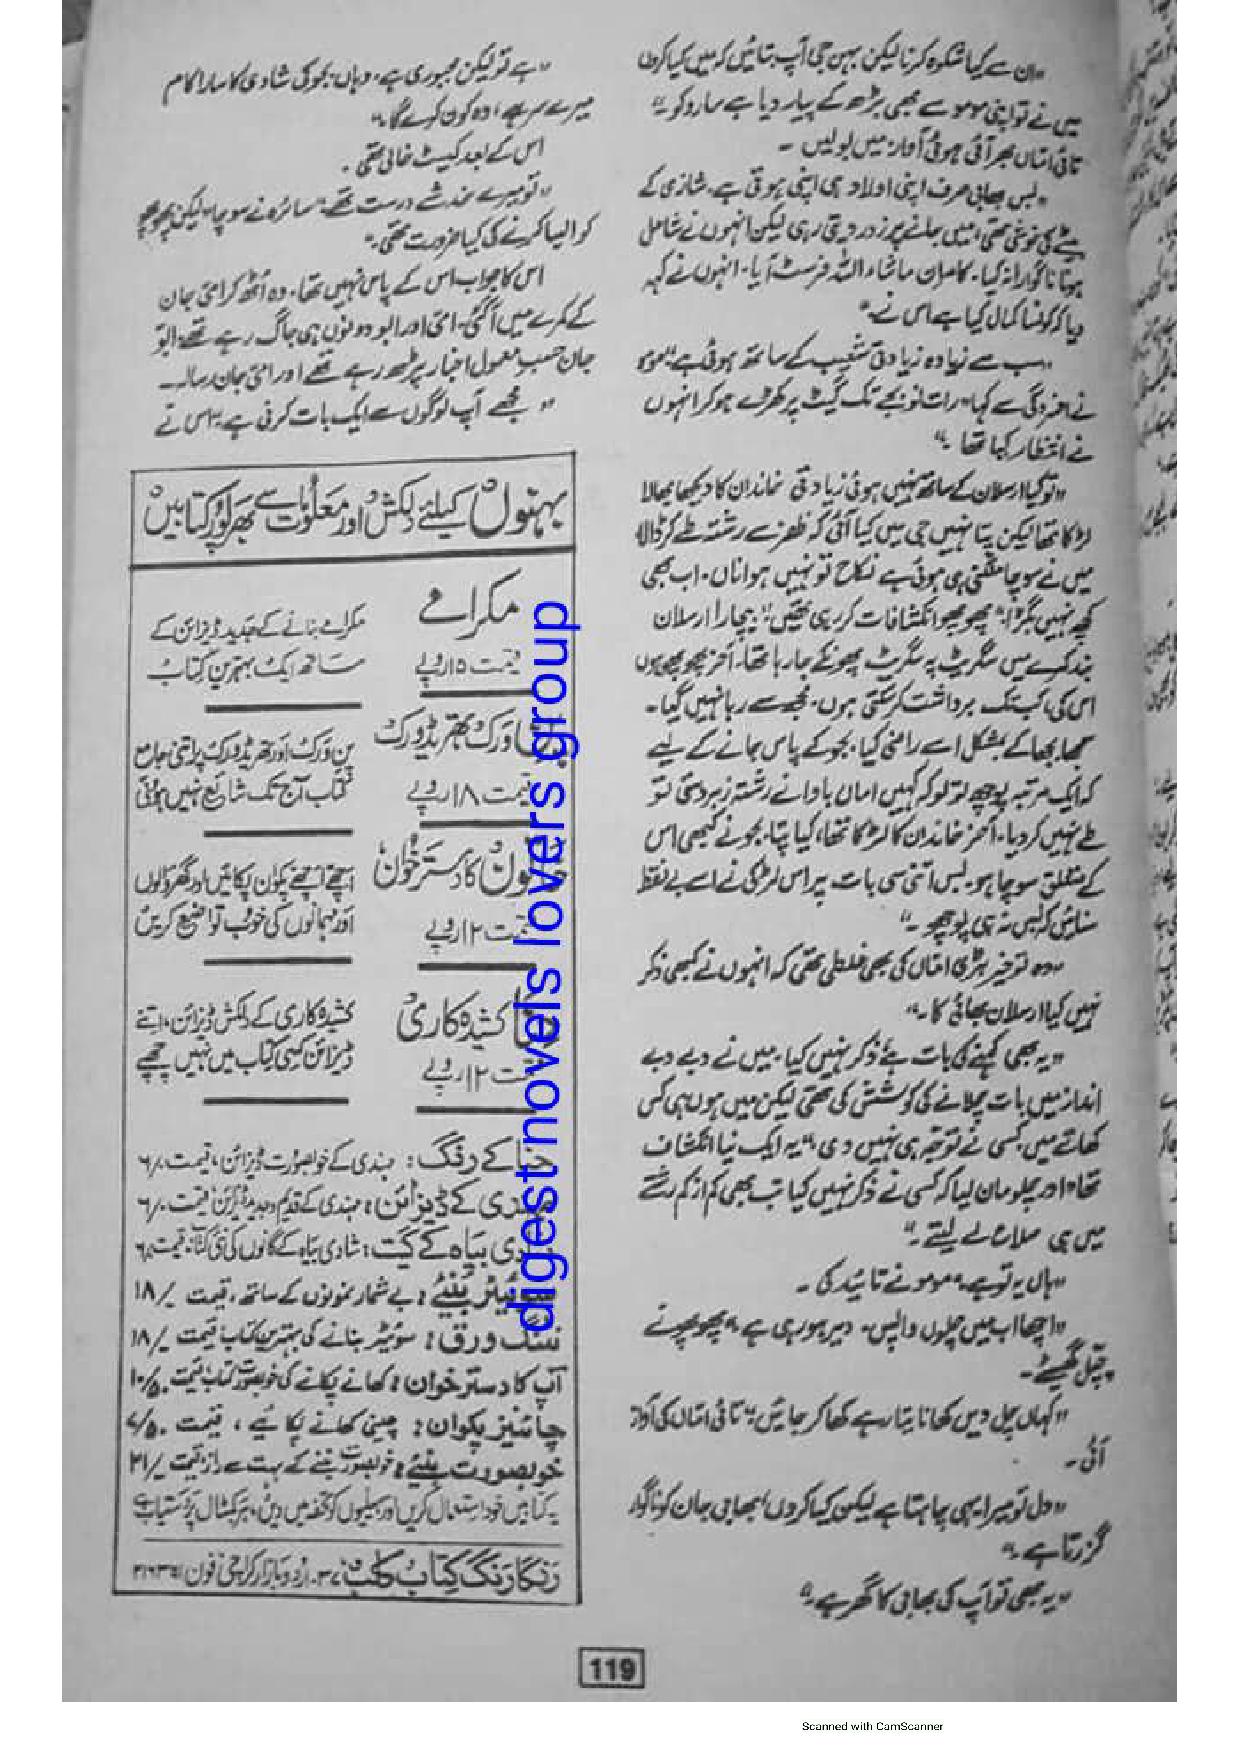 "ان سے کیا شکوہ کرنا لیکن بہن جی آپ بتائیں کہ میں کیا کروں
میں نے تو اپنی مومو سے بھی بڑھ کے پیار دیا ہے سارہ کو۔"
تائی اماں بھرآئی ہوئی آواز میں بولیں ۔
"بس بھابی صرف اپنی اولاد ہی اپنی ہوتی ہے۔ شازی کے
بیٹے کی خوشی تھی، میں جانے پر زور دیتی رہی لیکن انہوں نے شامل
ہونا ناگوارا نہ کیا۔ کامران ماشاء اللہ فرسٹ آیا۔ انہوں نے کہہ
دیا کہ کونسا کمال کیا ہے اس نے۔"
"سب سے زیادہ زیادتی شعیب کے ساتھ ہوئی ہے" مومو
نے افسردگی سے کہا "رات نو بجے تک گیٹ پر کھڑے ہو کر انہوں
نے انتظار کیا تھا ۔"
"تو کیا ارسلان کے ساتھ نہیں ہوئی زیادتی خاندان کا دیکھا بھالا
لڑکا تھا لیکن پتا نہیں جی میں کیا آئی کہ ظفر نے رشتہ طے کر ڈالا
میں نے سوچا منگنی ہی ہوئی ہے نکاح تو نہیں ہوا ناں۔ اب بھی
کچھ نہیں بگڑا" پھوپھو انکشافات کر رہی تھیں "بیچارا ارسلان
بند کمرے میں سگریٹ پہ سگریٹ پھونکے جا رہا تھا۔ آخر پھوپھو ہوں
اس کی، کب تک برداشت کر سکتی ہوں۔ مجھ سے رہا نہیں گیا۔
سمجھا بجھا کے بمشکل اسے راضی کیا۔ بجو کے پاس جانے کے لیے
کہ ایک مرتبہ پوچھ تو لو کہ کہیں اماں باوا نے رشتہ زبردستی تو
طے نہیں کر دیا۔ آخر خاندان کا لڑکا تھا، کیا پتا، بجو نے کبھی اس
کے متعلق سوچا ہو۔ بس اتنی سی بات پر اس لڑکی نے اسے بے نقط
سنائیں کہ بس نہ ہی پوچھو ۔"
"وہ تو خیر بڑی اماں کی بھی غلطی تھی کہ انہوں نے کبھی ذکر
نہیں کیا ارسلان بھائی کا۔"
"یہ بھی کہنے کی بات ہے ذکر نہیں کیا۔ میں نے دبے دبے
انداز میں بات چلانے کی کوشش کی تھی لیکن میں ہوں ہی کس
کھاتے میں، کسی نے توجہ ہی نہیں دی" یہ ایک نیا انکشاف
تھا "اور چلو مان لیا کہ کسی نے ذکر نہیں کیا تب بھی کم از کم رشتے
میں ہی صلاح لے لیتے ۔"
"ہاں یہ تو ہے" مومو نے تائید کی ۔
"اچھا اب میں چلوں واپس۔ دیر ہو رہی ہے" پھوپھو نے
چپل گھسیٹے۔
"کہاں چل دیں کھانا تیار ہے کھا کر جائیں" تائی اماں کی آواز
آئی ۔
"دل تو میرا یہی چاہتا ہے لیکن کیا کروں بھابی جان کو ناگوار
گزرتا ہے۔"
"یہ بھی تو آپ کی بھابی کا گھر ہے۔"
"ہے تو لیکن مجبوری ہے۔ وہاں بجو کی شادی کا سارا کام
میرے سر ہے، وہ کون کرے گا۔"
اس کے بعد کیسٹ خالی تھی ۔
"تو میرے خدشے درست تھے" سائرہ نے سوچا "لیکن پھوپھو
کو ایسا کرنے کی کیا ضرورت تھی۔"
اس کا جواب اس کے پاس نہیں تھا۔ وہ اٹھ کر امی جان
کے کمرے میں آگئی۔ امی اور ابو دونوں ہی جاگ رہے تھے۔ ابو
جان حسب معمول اخبار پڑھ رہے تھے اور امی جان رسالہ ۔
"مجھے آپ لوگوں سے ایک بات کرنی ہے" اس نے
بہنوں کیلئے دلکش اور معلومات سے بھرپور کتابیں
مکرامے
قیمت ۱۵ روپے
مکرامے بنانے کے جدید ڈیزائن کے
ساتھ ایک بہترین کتاب
ورک تھریڈ ورک
قیمت ۱۸ روپے
پن ورک اور تھریڈ ورک پر اتنی جامع
کتاب آج تک شائع نہیں ہوئی
کا دسترخوان
۱۲ روپے
اچھے اچھے پکوان پکائیں اور گھر والوں
اور مہمانوں کی خوب تواضع کریں
کشیدہ کاری
۱۲ روپے
کشیدہ کاری کے دلکش ڈیزائن، اتنے
ڈیزائن کسی کتاب میں نہیں چھپے
حنا کے رنگ: مہندی کے خوبصورت ڈیزائن، قیمت ۶/۰
مہندی کے ڈیزائن: مہندی کے قدیم و جدید ڈیزائن، قیمت ۶/۰
شادی بیاہ کے گیت: شادی بیاہ کے گانوں کی نئی کتاب، قیمت ۶/۰
سوئیٹر بنیئے: بے شمار نمونوں کے ساتھ، قیمت ۱۸/
ننگ ورق: سوئیٹر بنانے کی بہترین کتاب قیمت ۱۸/
آپ کا دسترخوان: کھانے پکانے کی خوبصورت کتاب قیمت ۱۰/۵۰
چائنیز پکوان: چینی کھانے پکائیے، قیمت ۷/۵۰
خوبصورت بنیئے: خوبصورت بننے کے بہت سے راز قیمت ۲۱/
یہ کتابیں خود استعمال کریں اور سہیلیوں کو تحفہ میں دیں، ہر بک اسٹال پر دستیاب ہے
رنگا رنگ کتاب کلب ۳۷۔ اردو بازار کراچی فون
digest novels lovers group
119
Scanned with CamScanner